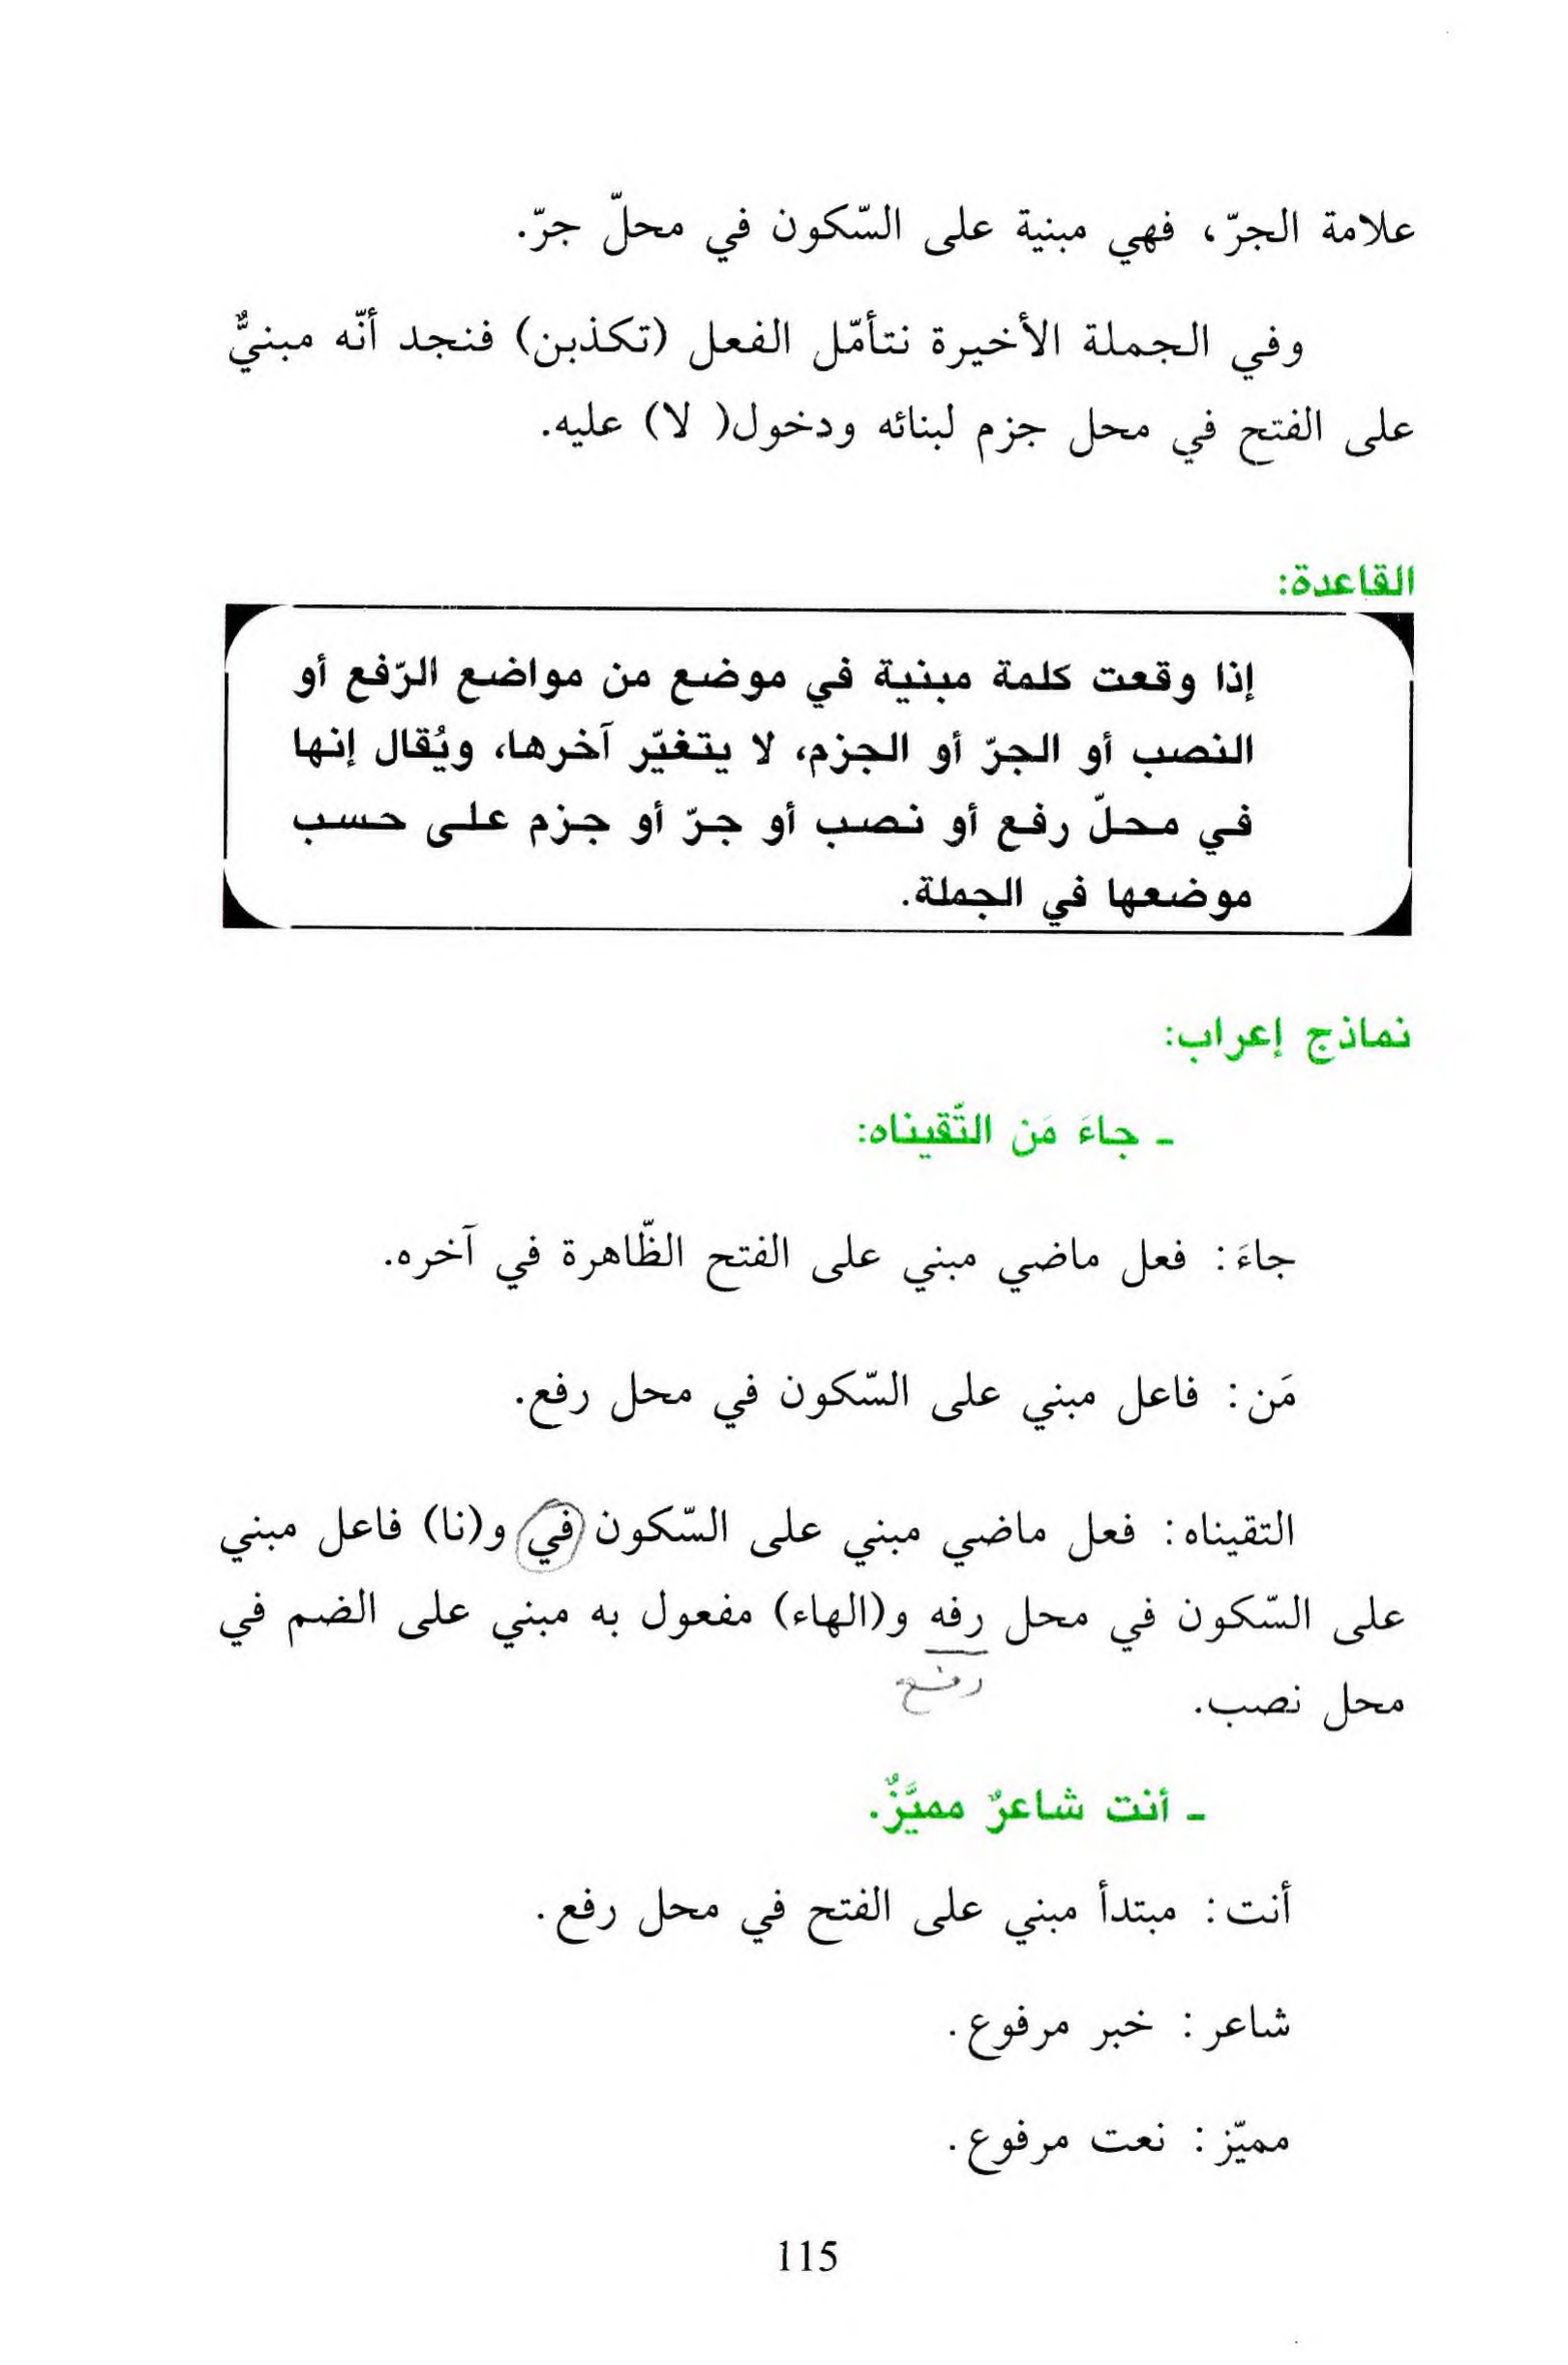 علامة الجرّ، فهي مبنية على السّكون في محلّ جرّ.
وفي الجملة الأخيرة نتأمّل الفعل (تكذبن) فنجد أنّه مبنيٌّ
على الفتح في محل جزم لبنائه ودخول( لا) عليه.
القاعدة:
إذا وقعت كلمة مبنية في موضع من مواضع الرّفع أو
النصب أو الجرّ أو الجزم، لا يتغيّر آخرها، ويُقال إنها
في محلّ رفع أو نصب أو جرّ أو جزم على حسب
موضعها في الجملة.
نماذج إعراب:
- جاءَ مَن التّقيناه:
جاءَ: فعل ماضي مبني على الفتح الظّاهرة في آخره.
مَن: فاعل مبني على السّكون في محل رفع.
التقيناه: فعل ماضي مبني على السّكون في و(نا) فاعل مبني
على السّكون في محل رفه و(الهاء) مفعول به مبني على الضم في
رفع
محل نصب.
- أنت شاعرٌ مميَّزٌ.
أنت: مبتدأ مبني على الفتح في محل رفع.
شاعر: خبر مرفوع.
مميّز: نعت مرفوع.
115